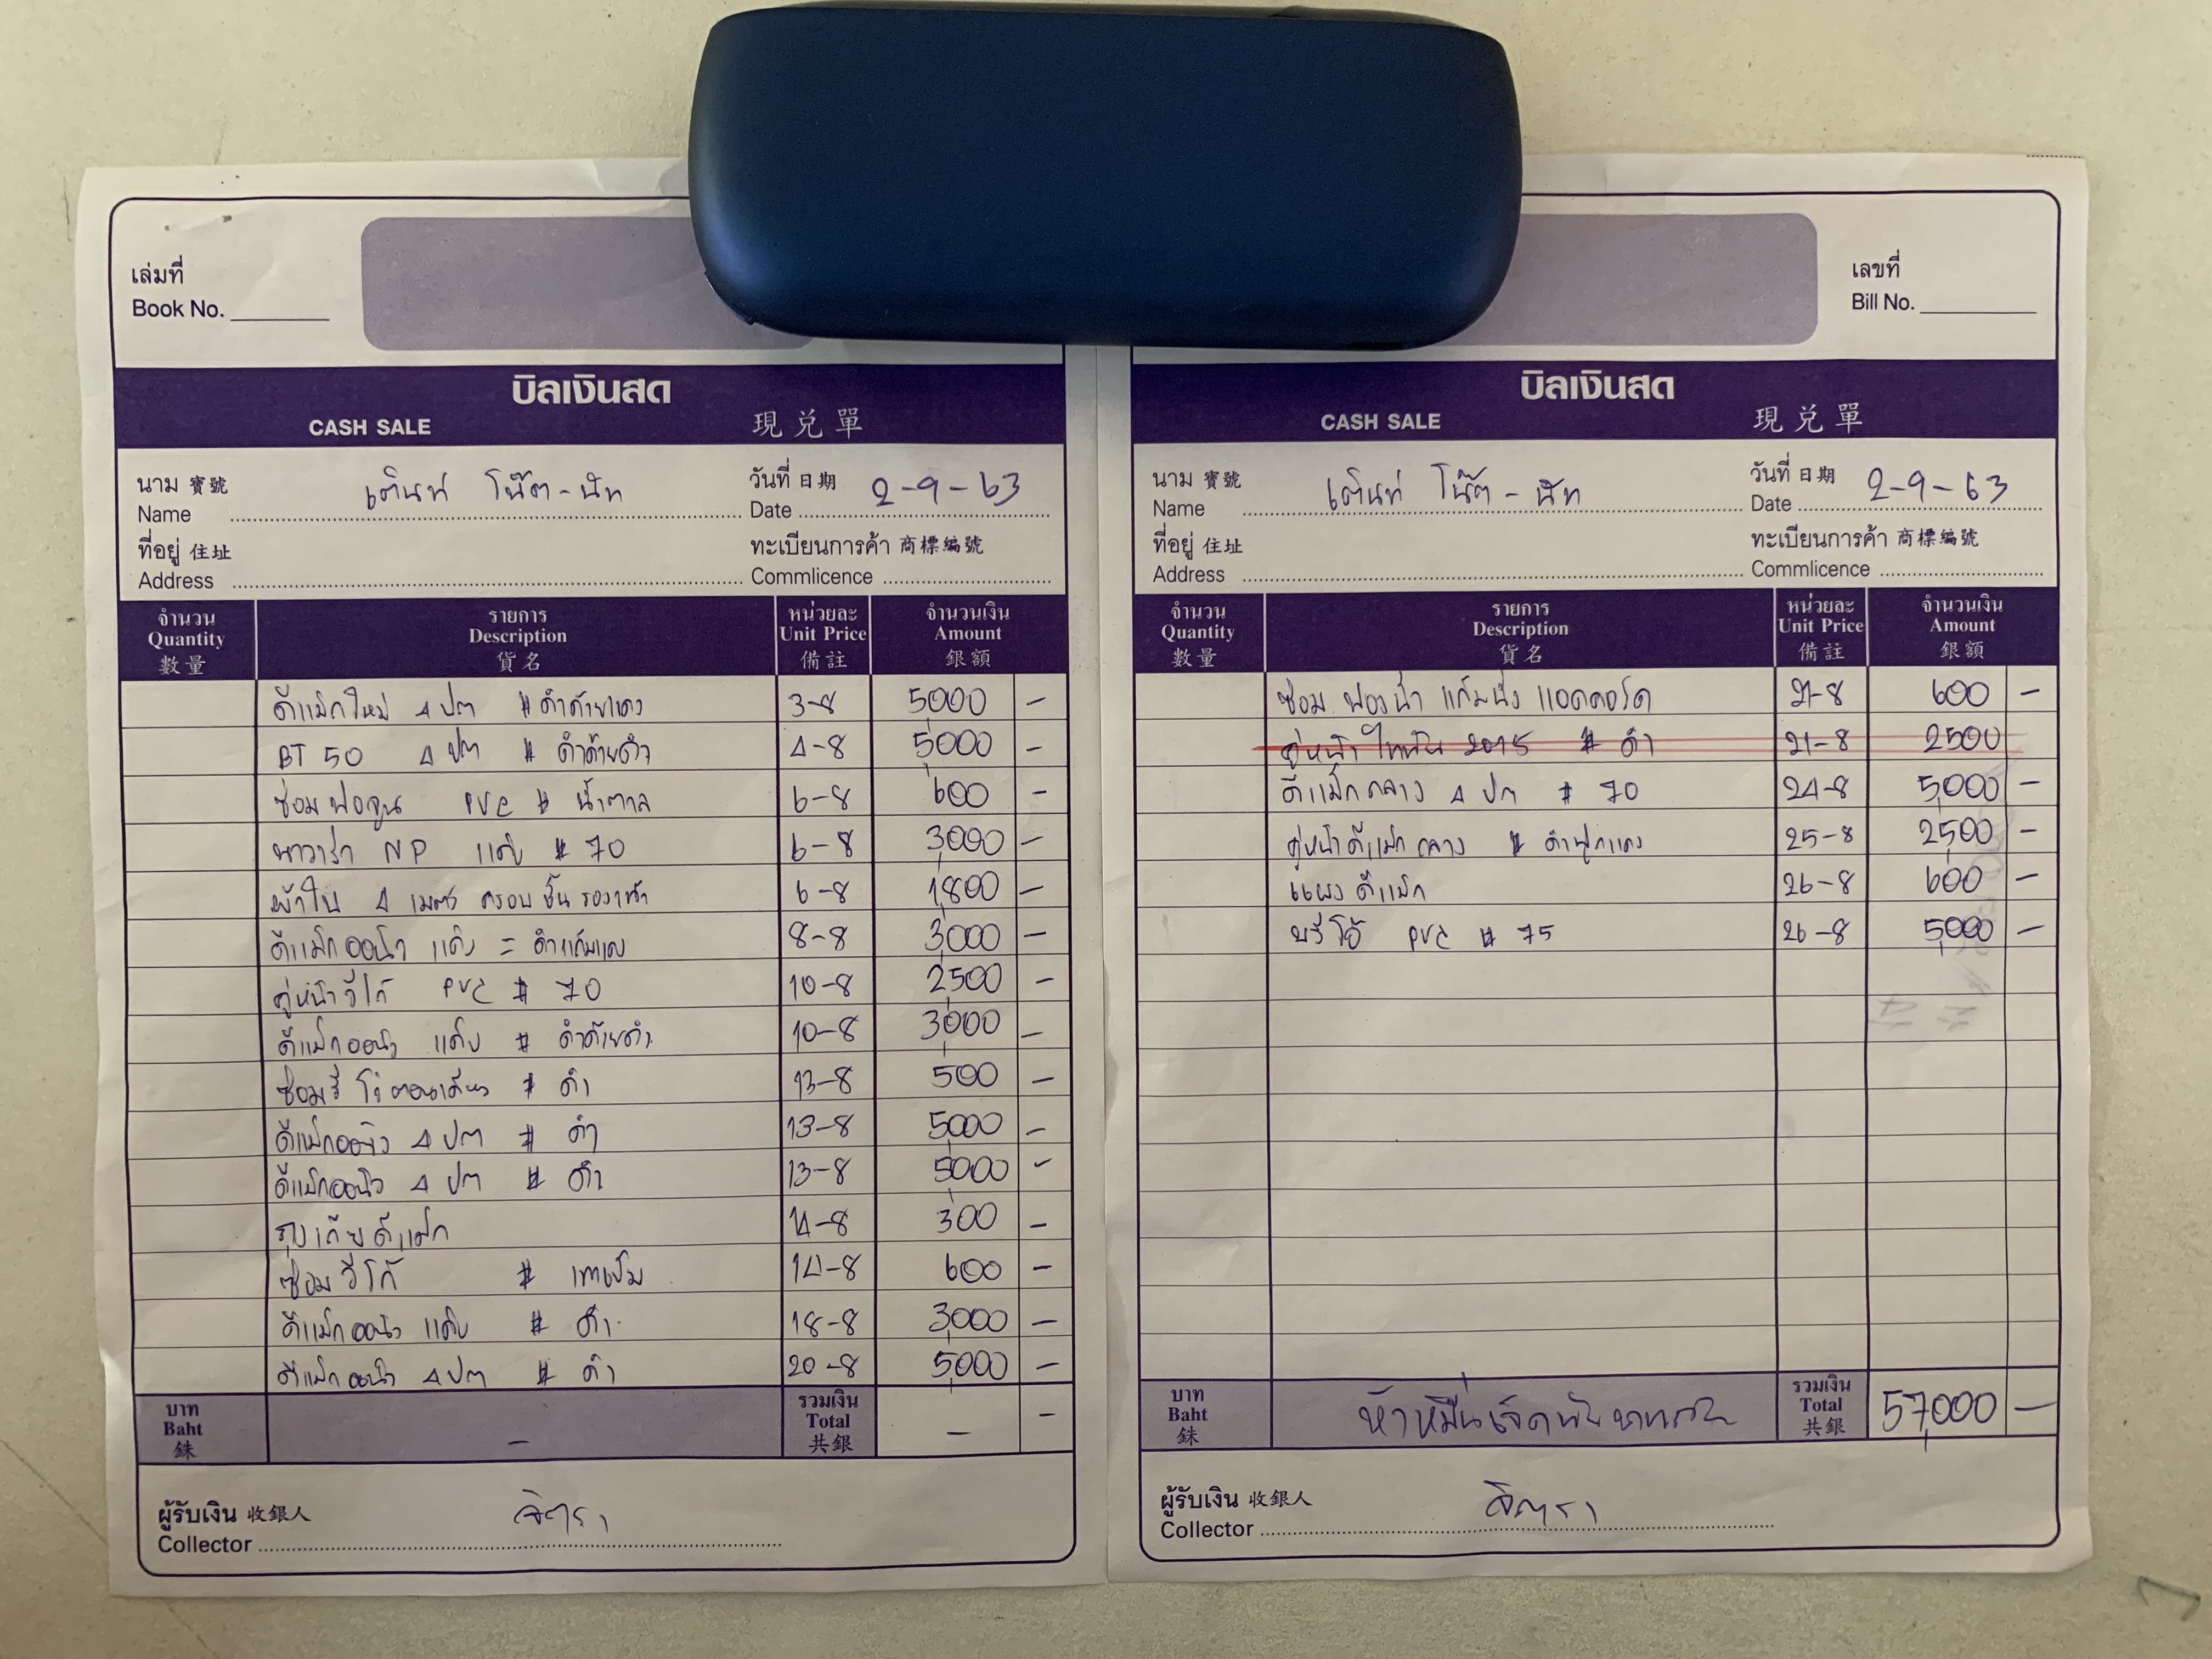 เล่มที่
Book No.
บิลเงินสด
CASH SALE 現兌單
นาม 寶號
Name เต็นท์ โน๊ต-นัท
วันที่ 日期
Date 2-9-63
ที่อยู่ 住址
Address
ทะเบียนการค้า 商標編號
Commlicence
จำนวน รายการ หน่วยละ จำนวนเงิน
Quantity Description Unit Price Amount
數量 貨名 備註 銀額
ดีแม็กใหม่ 4 ปต # ดำด้ายแดง 3-8 5000 -
BT 50 4 ปต # ดำด้ายดำ 4-8 5,000 -
ซ่อมฟอจูน PVC # น้ำตาล 6-8 600 -
นาวาร่า NP แค็บ # 70 6-8 3000 -
ผ้าใบ 4 เมตร ครอบ ชั้น รองเท้า 6-8 1,800 -
ดีแม็กออนิว แค็บ = ดำแถบแดง 8-8 3,000 -
คู่หน้าวีโก้ PVC # 70 10-8 2500 -
ดีแม็กออนิว แค็บ # ดำด้ายดำ 10-8 3,000 -
ซ่อมรีโว่ตอนเดียว # ดำ 13-8 500 -
ดีแม็กออนิว 4 ปต # ดำ 13-8 5000 -
ดีแม็กออนิว 4 ปต # ดำ 13-8 5000 -
ถุงเกียดีแม็ก 14-8 300 -
ซ่อมวีโก้ # เทาเข้ม 14-8 600 -
ดีแม็กออนิว แค็บ # ดำ 18-8 3,000 -
ดีแม็กออนิว 4 ปต # ดำ 20-8 5,000 -
บาท
Baht
銖
-
รวมเงิน
Total
共銀
- -
ผู้รับเงิน 收銀人
Collector จิตรา
เลขที่
Bill No.
บิลเงินสด
CASH SALE 現兌單
นาม 寶號
Name เต็นท์ โน๊ต-นัท
วันที่ 日期
Date 2-9-63
ที่อยู่ 住址
Address
ทะเบียนการค้า 商標編號
Commlicence
จำนวน รายการ หน่วยละ จำนวนเงิน
Quantity Description Unit Price Amount
數量 貨名 備註 銀額
ซ่อม ฟองน้ำ แก้มนั่ง แอคคอร์ด 21-8 600 -
คู่หน้า ไททัน 2015 # ดำ 21-8 2500
ดีแม็กกลาง 4 ปต # 70 24-8 5,000 -
คู่หน้าดีแม็กกลาง # ดำฟูกแดง 25-8 2500 -
แผงดีแม็ก 26-8 600 -
บรีโอ้ PVC # 75 26-8 5,000 -
บาท
Baht
銖
ห้าหมื่นเจ็ดพันบาทถ้วน
รวมเงิน
Total
共銀
57,000 -
ผู้รับเงิน 收銀人
Collector จิตรา